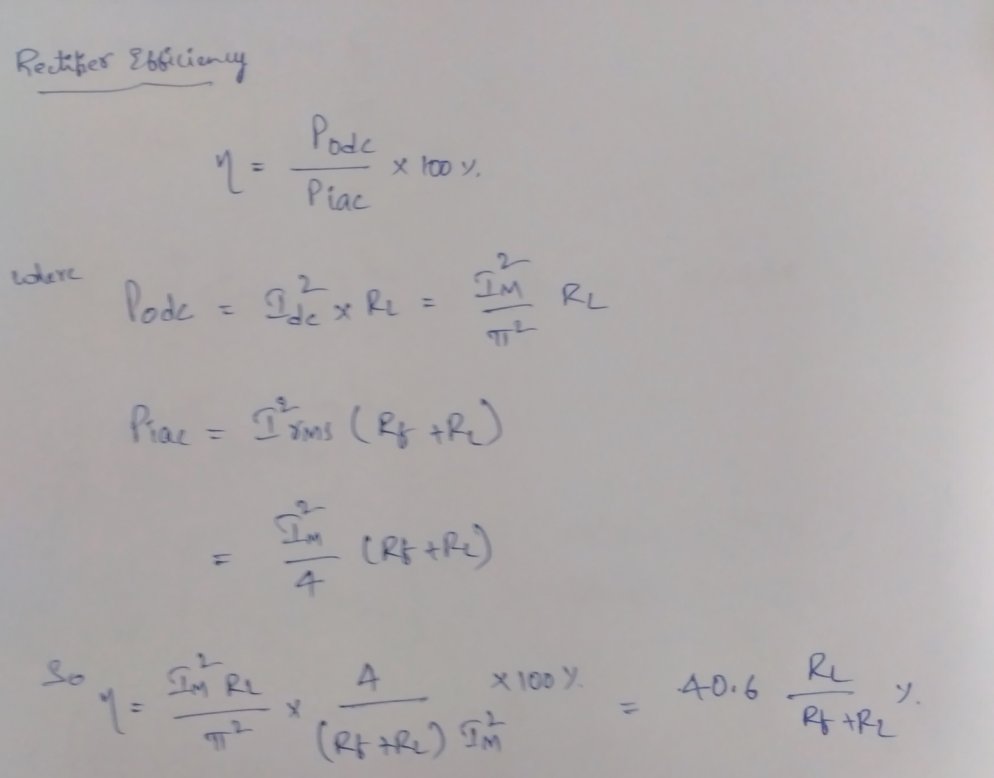 Rectifier Efficiency
η = Podc / Piac × 100 %.
where
Podc = I²dc × RL = I²M / π² RL
Piac = I²rms (Rf + RL)
= I²M / 4 (Rf + RL)
So η = I²M RL / π² × 4 / (Rf + RL) I²M × 100 % = 40.6 RL / Rf + RL %.